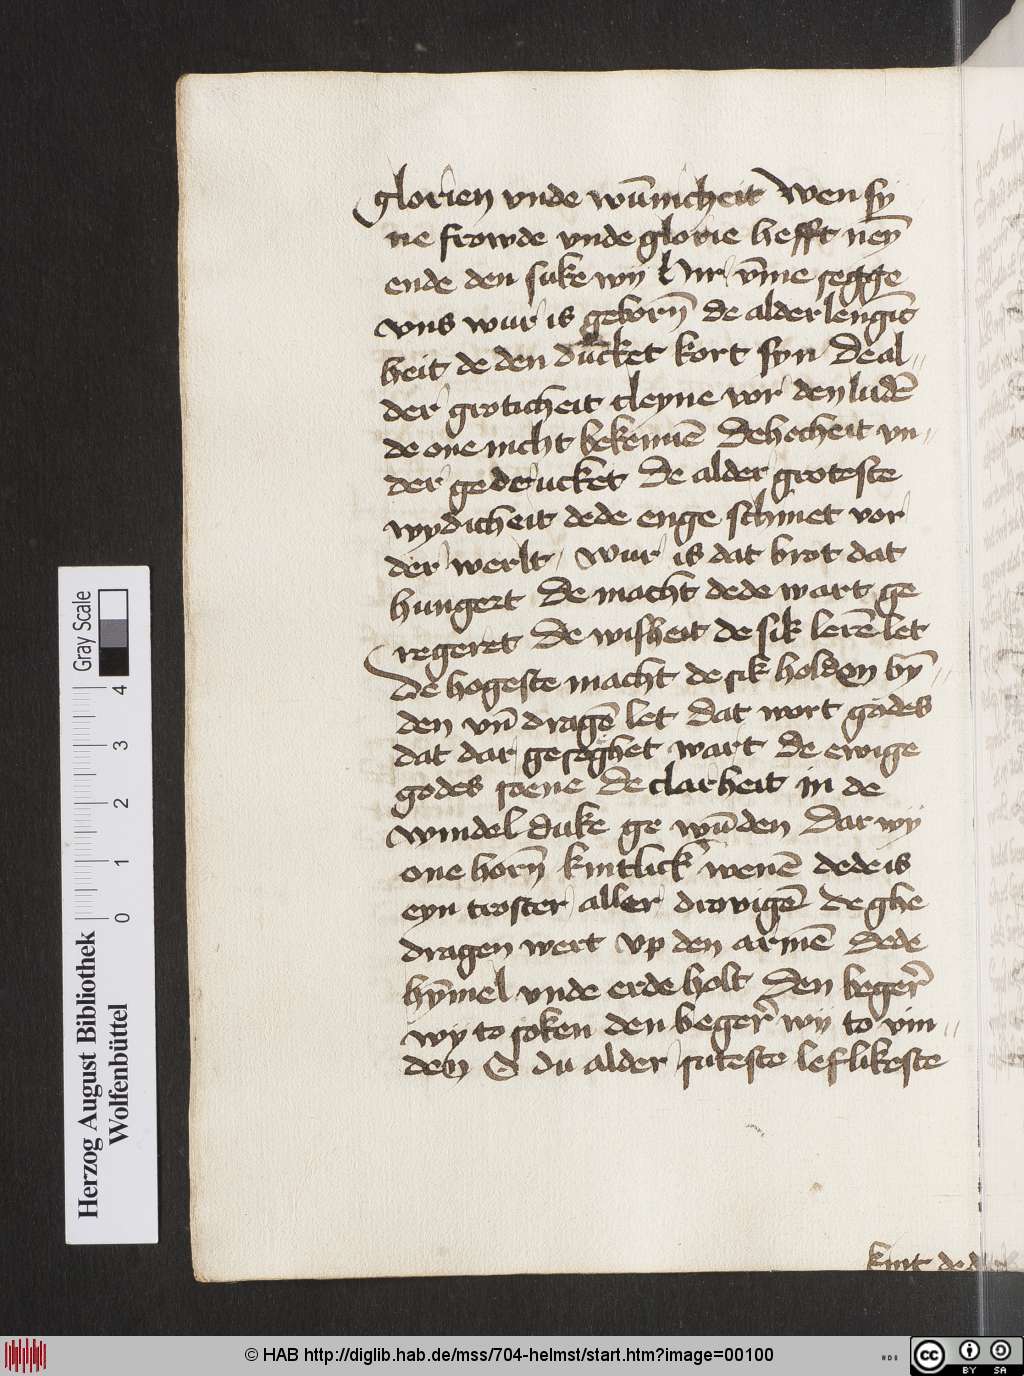 glorien vnde wūnicheit Wen sy
ne frowde vnde glorie hefft neȳ
ende den suke wy Hir v̄me segge
vns wur is geborn̄ de alder lengist
heit de den ducket kort syn De al-
der groticheit cleyne vor den ludē
de one nicht bekennē De hocheit vn-
der gedrucket De alder groteste
wydicheit de de enge schinet vor
der werlt, wur is dat brot dat
hungert De macht de de wart ge
regeret De wisheit de sik lerē let
De hogeste macht de sik holden bȳ-
den vn̄ dragē let Dat wort godes
dat dar gesoghet wart De ewige
godes soene De clarheit in de
windel duke ge wūden Dar wy
one horn̄ kintlick wenē de de is
eyn troster aller drovigē De ghe
dragen wert vp den armē De de
hȳmel vnde erde holt Den beger̄
wy to soken den beger̄ wy to vin-
den O du alder suteste leflikeste
kint de d
Herzog August Bibliothek
Wolfenbüttel
0 1 2 3 4
Gray Scale
© HAB http://diglib.hab.de/mss/704-helmst/start.htm?image=00100
cc BY SA